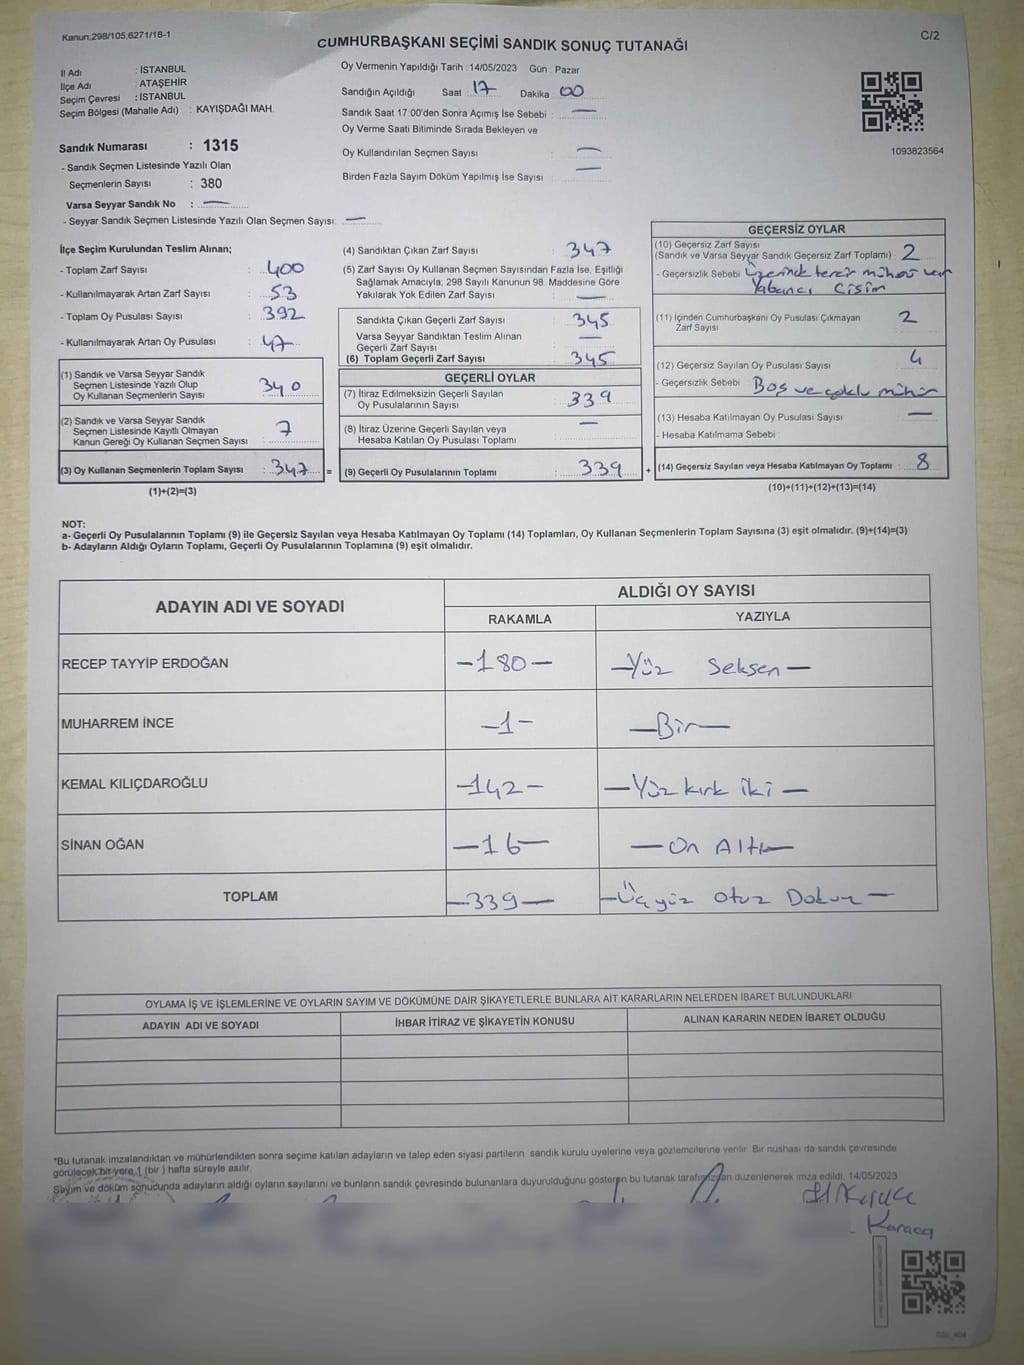 Kanun:298/105,6271/18-1
C/2
CUMHURBAŞKANI SEÇİMİ SANDIK SONUÇ TUTANAĞI
İl Adı : İSTANBUL
İlçe Adı : ATAŞEHİR
Seçim Çevresi : İSTANBUL
Seçim Bölgesi (Mahalle Adı) : KAYIŞDAĞI MAH.
Sandık Numarası : 1315
- Sandık Seçmen Listesinde Yazılı Olan
Seçmenlerin Sayısı : 380
Varsa Seyyar Sandık No : —
- Seyyar Sandık Seçmen Listesinde Yazılı Olan Seçmen Sayısı: —
Oy Vermenin Yapıldığı Tarih :14/05/2023 Gün : Pazar
Sandığın Açıldığı Saat 17 Dakika 00
Sandık Saat 17:00'den Sonra Açımış İse Sebebi : —
Oy Verme Saati Bitiminde Sırada Bekleyen ve
Oy Kullandırılan Seçmen Sayısı : —
Birden Fazla Sayım Döküm Yapılmış İse Sayısı : —
1093823564
İlçe Seçim Kurulundan Teslim Alınan;
- Toplam Zarf Sayısı : 400
- Kullanılmayarak Artan Zarf Sayısı : 53
- Toplam Oy Pusulası Sayısı : 392
- Kullanılmayarak Artan Oy Pusulası : 47
(1) Sandık ve Varsa Seyyar Sandık
Seçmen Listesinde Yazılı Olup
Oy Kullanan Seçmenlerin Sayısı : 340
(2) Sandık ve Varsa Seyyar Sandık
Seçmen Listesinde Kayıtlı Olmayan
Kanun Gereği Oy Kullanan Seçmen Sayısı : 7
(3) Oy Kullanan Seçmenlerin Toplam Sayısı : 347 =
(1)+(2)=(3)
(4) Sandıktan Çıkan Zarf Sayısı : 347
(5) Zarf Sayısı Oy Kullanan Seçmen Sayısından Fazla İse, Eşitliği
Sağlamak Amacıyla; 298 Sayılı Kanunun 98. Maddesine Göre
Yakılarak Yok Edilen Zarf Sayısı : —
Sandıkta Çıkan Geçerli Zarf Sayısı : 345
Varsa Seyyar Sandıktan Teslim Alınan
Geçerli Zarf Sayısı : —
(6) Toplam Geçerli Zarf Sayısı : 345
GEÇERLİ OYLAR
(7) İtiraz Edilmeksizin Geçerli Sayılan
Oy Pusulalarının Sayısı : 339
(8) İtiraz Üzerine Geçerli Sayılan veya
Hesaba Katılan Oy Pusulası Toplamı : —
(9) Geçerli Oy Pusulalarının Toplamı : 339 +
GEÇERSİZ OYLAR
(10) Geçersiz Zarf Sayısı
(Sandık ve Varsa Seyyar Sandık Geçersiz Zarf Toplamı) : 2
- Geçersizlik Sebebi : Üzerinde tercih mühürü var
Yabancı Cisim
(11) İçinden Cumhurbaşkanı Oy Pusulası Çıkmayan
Zarf Sayısı : 2
(12) Geçersiz Sayılan Oy Pusulası Sayısı : 4
- Geçersizlik Sebebi : Boş ve çoklu mühür
(13) Hesaba Katılmayan Oy Pusulası Sayısı : —
- Hesaba Katılmama Sebebi :
(14) Geçersiz Sayılan veya Hesaba Katılmayan Oy Toplamı : 8
(10)+(11)+(12)+(13)=(14)
NOT:
a- Geçerli Oy Pusulalarının Toplamı (9) ile Geçersiz Sayılan veya Hesaba Katılmayan Oy Toplamı (14) Toplamları, Oy Kullanan Seçmenlerin Toplam Sayısına (3) eşit olmalıdır. (9)+(14)=(3)
b- Adayların Aldığı Oyların Toplamı, Geçerli Oy Pusulalarının Toplamına (9) eşit olmalıdır.
ADAYIN ADI VE SOYADI
ALDIĞI OY SAYISI
RAKAMLA YAZIYLA
RECEP TAYYİP ERDOĞAN —180— —Yüz Seksen—
MUHARREM İNCE —1— —Bir—
KEMAL KILIÇDAROĞLU —142— —Yüz kırk iki—
SİNAN OĞAN —16— —On Altı—
TOPLAM —339— —Üçyüz Otuz Dokuz—
OYLAMA İŞ VE İŞLEMLERİNE VE OYLARIN SAYIM VE DÖKÜMÜNE DAİR ŞİKAYETLERLE BUNLARA AİT KARARLARIN NELERDEN İBARET BULUNDUKLARI
ADAYIN ADI VE SOYADI İHBAR İTİRAZ VE ŞİKAYETİN KONUSU ALINAN KARARIN NEDEN İBARET OLDUĞU
*Bu tutanak imzalandıktan ve mühürlendikten sonra seçime katılan adayların ve talep eden siyasi partilerin sandık kurulu üyelerine veya gözlemcilerine verilir. Bir nüshası da sandık çevresinde
görülecek bir yere 1 (bir ) hafta süreyle asılır.
Sayım ve döküm sonucunda adayların aldığı oyların sayılarını ve bunların sandık çevresinde bulunanlara duyurulduğunu gösteren bu tutanak tarafımızdan düzenlenerek imza edildi. 14/05/2023
Karaca